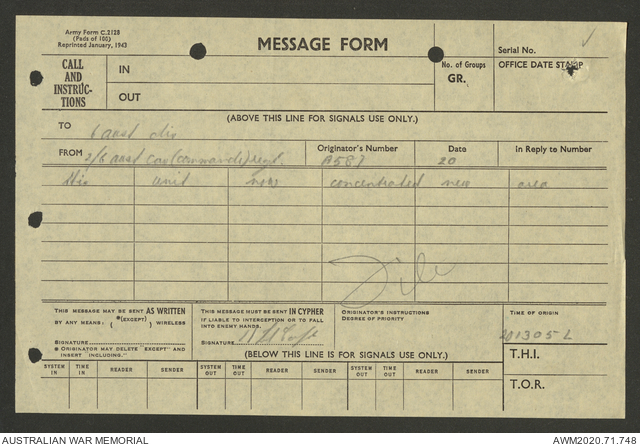 Army Form C.2128
(Pads of 100)
Reprinted January, 1943
MESSAGE FORM
Serial No.
CALL AND INSTRUC- TIONS
IN
OUT
No. of Groups
GR.
OFFICE DATE STAMP
(ABOVE THIS LINE FOR SIGNALS USE ONLY.)
TO 6 aust div
FROM 2/6 aust Cav (commando) regt.
Originator's Number A587
Date 20
In Reply to Number
this unit now concentrated new area
File
THIS MESSAGE MAY BE SENT AS WRITTEN
BY ANY MEANS: ( *(EXCEPT) ) WIRELESS
SIGNATURE
* ORIGINATOR MAY DELETE "EXCEPT" AND
INSERT "INCLUDING."
THIS MESSAGE MUST BE SENT IN CYPHER
IF LIABLE TO INTERCEPTION OR TO FALL
INTO ENEMY HANDS.
SIGNATURE
ORIGINATOR'S INSTRUCTIONS
DEGREE OF PRIORITY
TIME OF ORIGIN
201305 L
T.H.I.
T.O.R.
(BELOW THIS LINE IS FOR SIGNALS USE ONLY.)
SYSTEM IN TIME IN READER SENDER SYSTEM OUT TIME OUT READER SENDER SYSTEM OUT TIME OUT READER SENDER
AUSTRALIAN WAR MEMORIAL
AWM2020.71.748